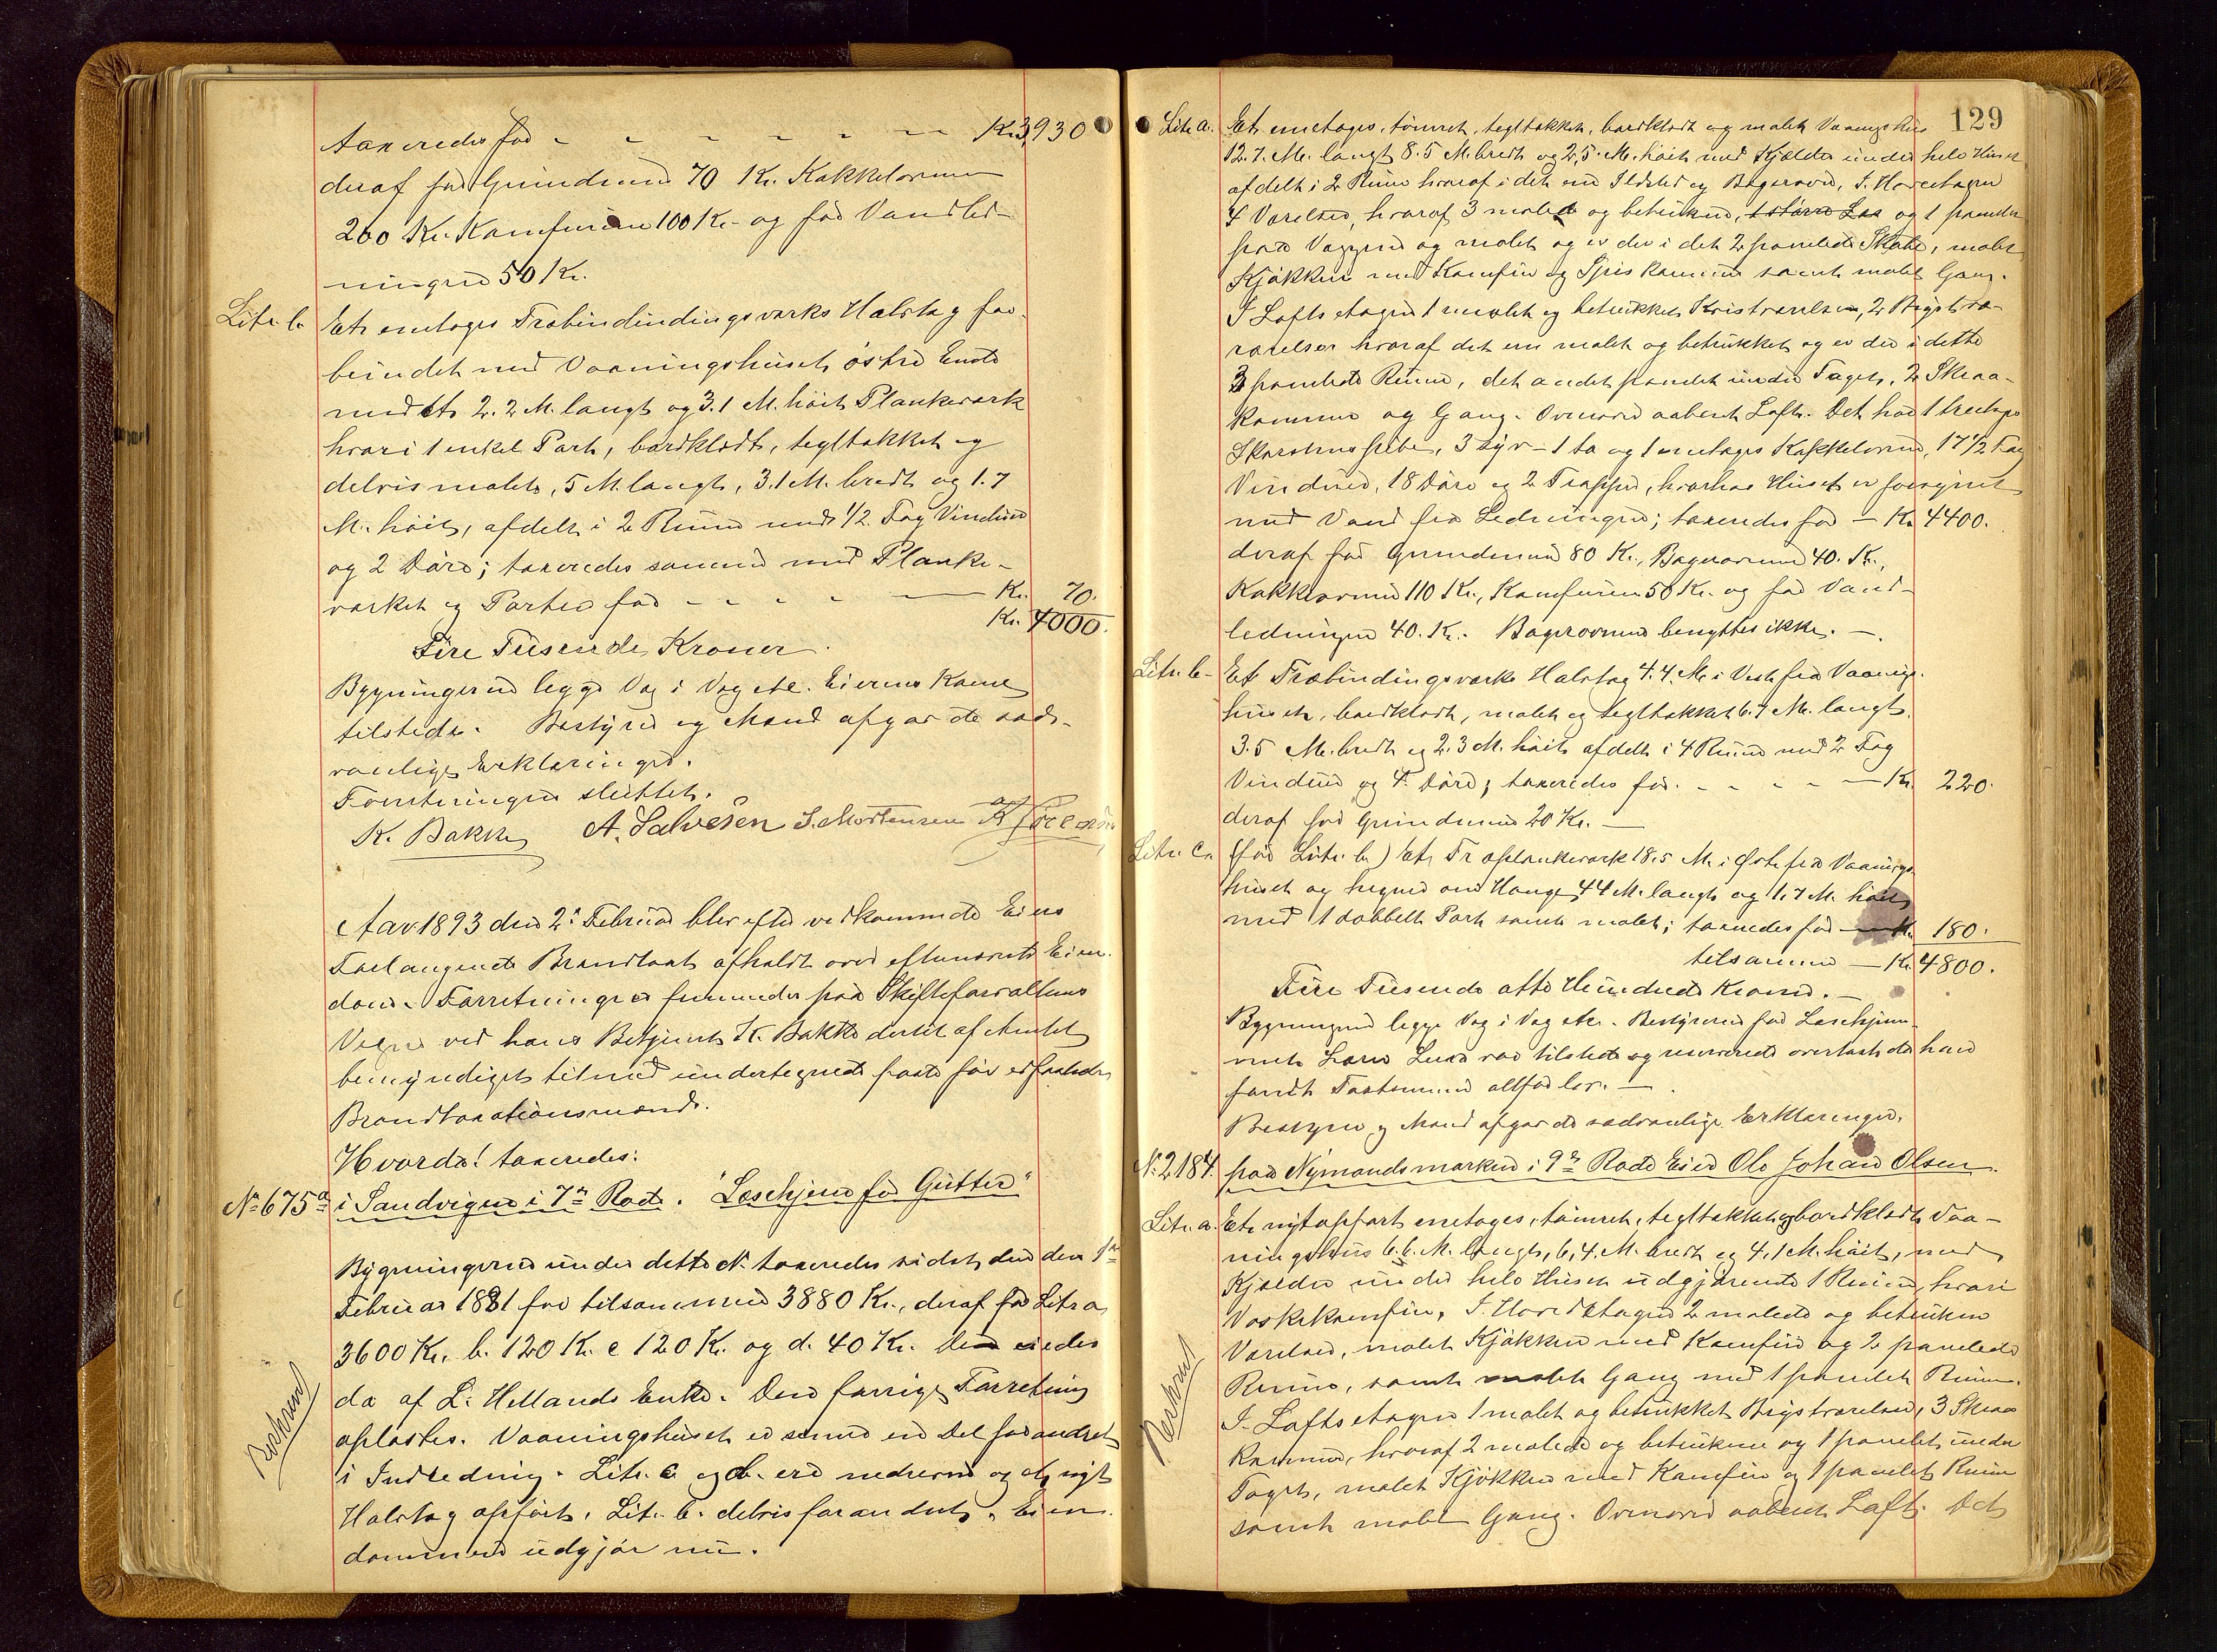 taxeredes for - - - - - - - Kr. 3,930
deraf for Grundmuren 70 Kr. Kakkelovnene
200 Kr. Komfuren 100 Kr. og for Vandled-
ningen 50 Kr.
Litr. b. Et enetages Træbindindingsværks Halvtag for-
bundet med Vaaningshusets østre Ende
med et 2.2 M. langt og 3.1 M. høit Plankeværk
hvori 1 enkel Port, bordklædt, tegltækket og
delvis malet, 5 M. langt, 3.1 M. bredt og 1.7
M. høit, afdelt i 2 Rum med 1/2 Fag Vinduer
og 2 Døre; taxeredes sammen med Planke-
værket og Porten for - - - - Kr. 70.
Kr. 4000.
Fire Tusinde Kroner.
Bygningerne ligge Væg i Væg etc. Eierens Kone
tilstede. Bestyrer og Mænd afgav de sæd-
vanlige Erklæringer.
Forretningen sluttet.
K. Bakke A. Salvesen S. Mortensen
Aar 1893 den 2den Februar blev efter vedkommende Eieres
Forlangende Brandtaxt afholdt over eftennævnte Eien-
dom. Forretningen fremmedes paa Skifteforvalterens
Vegne ved hans Betjent K. Bakke dertil af Amtet
bemyndiget tilmed undertegnede faste før edfæstede
Brandtaxationsmænd.
Hvorda! taxeredes:
No 675a i Sandvigen i 7de Rode. "Læsehjem for Gutter"
Bygningerne under dette No taxeredes sidst den den 1ste
Februar 1881 for tilsammen 3880 Kr., deraf for Litr a
3600 Kr. b. 120 Kr. c 120 Kr. og d. 40 Kr. Den eiedes
da af L. Hellands Enke. Den forrige Forretning
oplæstes. Vaaningshuset er senere en Del forandret
i Indredning. Litr. c og d. ere nedrevne og et nyt
Halvtag opført. Litr. b. delvis forandret. Eien-
dommen udgjør nu.
129
Litr a. Et enetages, tømret, tegltækket, bordklædt og malet Vaaningshus
12.7. M. langt 8.5 M. bredt og 2,5. M. høit med Kjælder under hele Huset
afdelt i 2 Rum hvoraf i det ene Ildsted og Bagerovn, I. Hovedetagen
4 Værelser, hvoraf 3 malede og betrukne, og 1 panelet
paa Væggene og malet og er der i det 2 panelede Skabe, malet
Kjøkken med Komfur og Spiskammer samt malet Gang.
I Lofts etagen 1 malet og betrukket Kvistværelse, 2 Brystvæ-
rærelser hvoraf det ene malet og betrukket og er der i dette
3 panelede Rum, det andet panelet under Taget, 2 Skraa-
kammer og Gang. Ovenover aabent Loft. Det har 1 treetages
Skorstenspibe, 3 syv- 1 to og 1 enetages Kakkelovne, 17 1/2 Fag
Vinduer, 18 Døre og 2 Trapper, hvorhos Huset er forsynet
med Vand fra Ledningen; taxeredes for - Kr. 4400.
deraf for Grundmuren 80 Kr., Bagerovnen 40. Kr.,
Kakkelovnene 110 Kr., Komfuren 50 Kr. og for Vand-
ledningen 40. Kr. Bagerovnen benyttes ikke. -
Litr. b- Et Træbindingsværks Halvtag 4.4. M. i Vest fra Vaanings-
huset, bordklædt, malet og tegltækket 6.7 M. langt,
3.5 M. bredt og 2.3 M. høit, afdelt i 4 Rum med 2 Fag
Vinduer og 4. Døre; taxeredes for. - - - - Kr. 220.
deraf for Grundmuren 20 Kr. -
Litr. c. (før Litr. b.) Et Træplankeværk 18.5 M. i Øst fra Vaanings-
huset og hegner om Hauge 44 M. langt og 1.7 M. høit
med 1 dobbelt Port samt malet; taxeredes for - Kr. 180.
tilsammen - Kr. 4800.
Fire Tusende otte Hundrede Kroner. -
Bygningerne ligge Væg i Væg etc. Bestyreren for Læsehjem-
met Lars Lund var tilstede og reserverede overtaxt da han
fandt Taxtsummen altfor lav. -
Bestyrer og Mænd afgav de sædvanlige Erklæringer.
No. 2184. paa Nymandsmarken i 9de Rode Eier Ole Johan Olsen.
Litr. a. Et nyt opført enetages, tømret, tegltækket og bordklædt Vaa-
ningshus 6.6. M. langt, 6,4. M. bredt og 4,1 M. høit, med
Kjælder under hele Huset udgjørende 1 Rum, hvori
Vaskekomfur. I. Hovedetagen 2 malede og betrukne
Værelser, malet Kjøkken med Komfur og 2 panelede
Rum, samt malet Gang med 1 panelet Rum.
I- Lofts etagen 1 malet og betrukket Brystværelse, 3 Skraa
kammer, hvoraf 2 malede og betrukne og 1 panelet under
Taget, malet Kjøkken med Komfur og 1 panelet Rum
samt malet Gang. Ovenover aabent Loft. Det